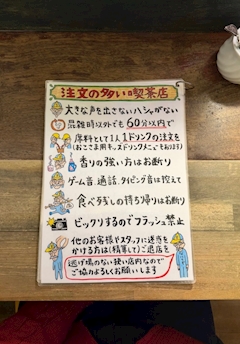 注文の多い喫茶店
大きな声を出さないハシャがない
混雑時以外でも60分以内で
原則として1人1ドリンクの注文を
(おこさま用キッズドリンクメニューもあります)
香りの強い方はお断り
ゲーム音、通話、タイピング音は控えて
食べ残しの持ち帰りはお断り
ビックリするのでフラッシュ禁止
他のお客様やスタッフに迷惑を
かける方は(精算して)ご退店を
逃げ場のない狭い店内なので
ご協力よろしくお願いします